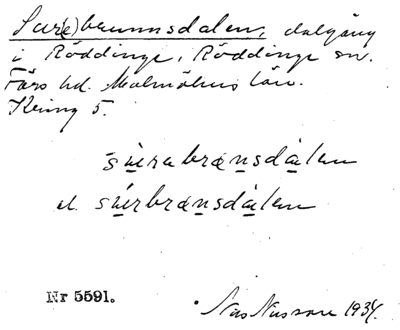 Sur(e)brunnsdalen, dalgång
i Röddinge, Röddinge sn.
Färs hd. Malmöhus län.
Kning 5.
súrabrœnsdàlen
el. súrbrœnsdàlen
Nr 5591.
Nils Nilsson 1934.